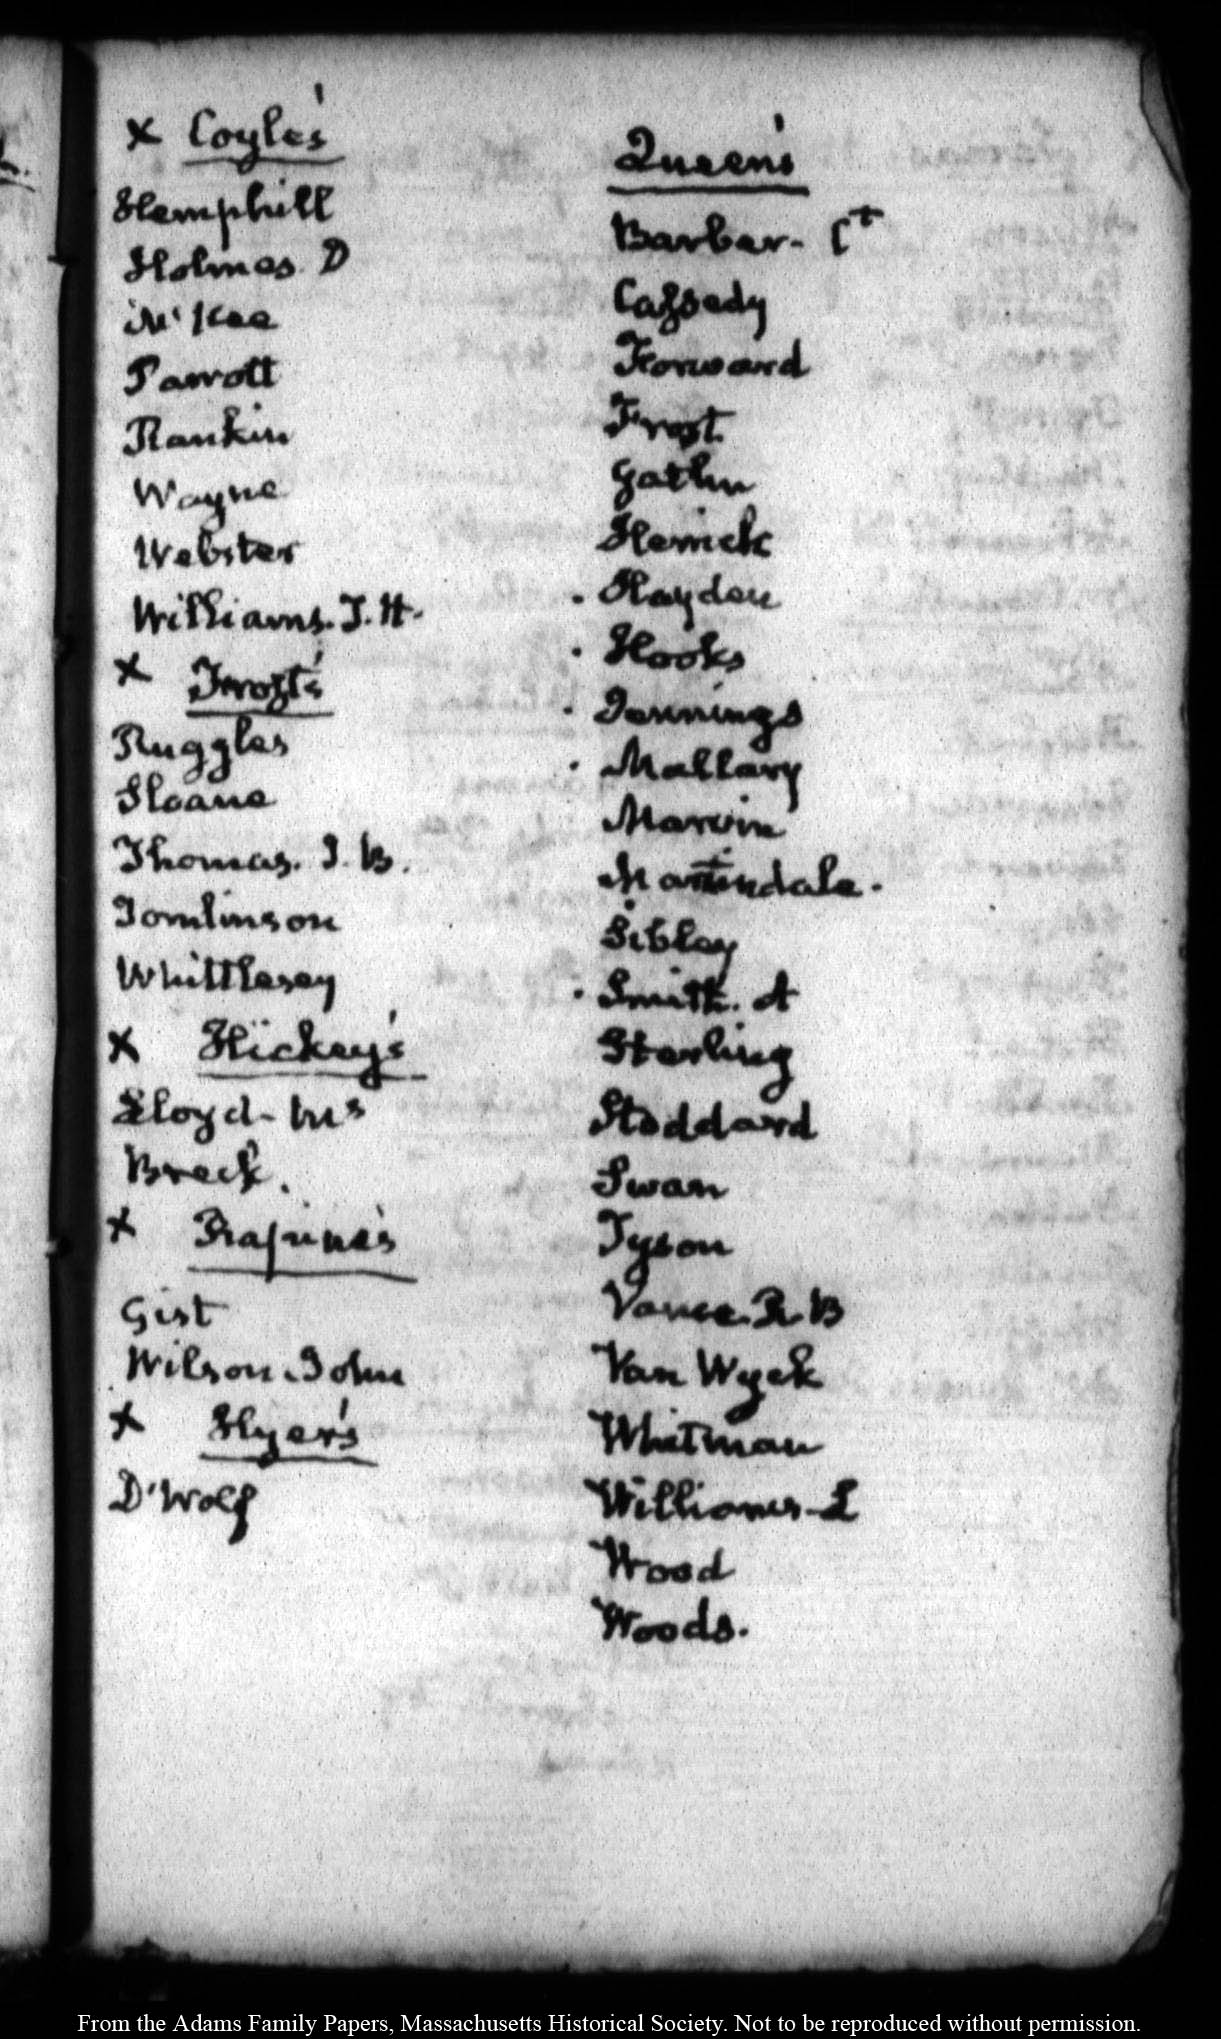 x Coyle's
Hemphill
Holmes. D
McKee
Parrott
Rankin
Wayne
Webster
Williams. T. H.
x Frost's
Ruggles
Sloane
Thomas. J. B.
Tomlinson
Whittlesey
x Hickey's
Lloyd - Ms
Breck.
x Rapine's
Gist
Wilson. John
x Hyer's
D'Wolf
Queen's
Barber - Ct
Cassedy
Forward
Frost
Gatlin
Herrick
. Hayden
. Hooks
. Jennings
. Mallary
Marvin
Martindale.
Sibley
. Smith. A
Sterling
Stoddard
Swan
Tyson
Vance. R. B
Van Wyck
Whitman
Williams - L
Wood
Woods.
From the Adams Family Papers, Massachusetts Historical Society. Not to be reproduced without permission.